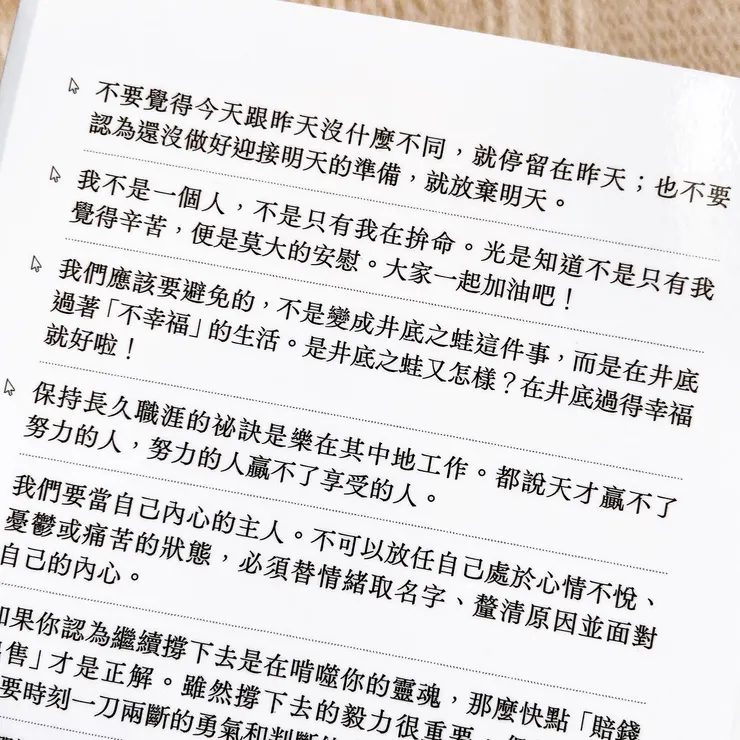 不要覺得今天跟昨天沒什麼不同，就停留在昨天；也不要
認為還沒做好迎接明天的準備，就放棄明天。
我不是一個人，不是只有我在拚命。光是知道不是只有我
覺得辛苦，便是莫大的安慰。大家一起加油吧！
我們應該要避免的，不是變成井底之蛙這件事，而是在井底
過著「不幸福」的生活。是井底之蛙又怎樣？在井底過得幸福
就好啦！
保持長久職涯的祕訣是樂在其中地工作。都說天才贏不了
努力的人，努力的人贏不了享受的人。
我們要當自己內心的主人。不可以放任自己處於心情不悅、
憂鬱或痛苦的狀態，必須替情緒取名字、釐清原因並面對
自己的內心。
如果你認為繼續撐下去是在啃噬你的靈魂，那麼快點「賠錢
出售」才是正解。雖然撐下去的毅力很重要，
要時刻一刀兩斷的勇氣和判斷